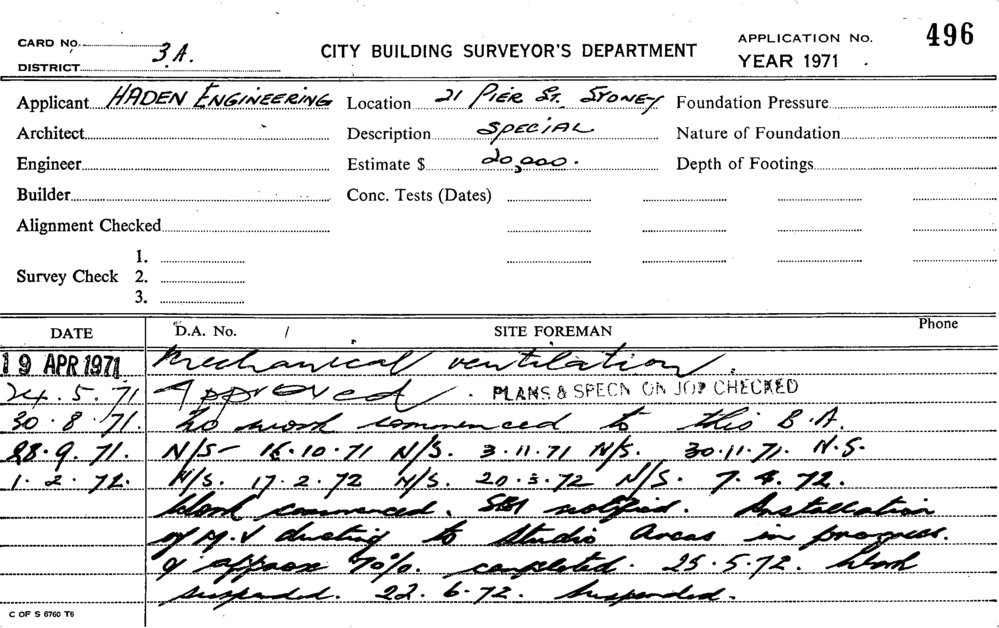 CARD No. 3A. CITY BUILDING SURVEYOR'S DEPARTMENT APPLICATION No. 496
DISTRICT YEAR 1971
Applicant HADEN ENGINEERING Location 21 PIER ST. STONEY Foundation Pressure
Architect Description SPECIAL Nature of Foundation
Engineer Estimate $ 20,000. Depth of Footings
Builder Conc. Tests (Dates)
Alignment Checked
1.
Survey Check 2.
3.
DATE D.A. No. / SITE FOREMAN Phone
19 APR 1971 Mechanical ventilation.
24.5.71 Approved. PLANS & SPECN ON JOB CHECKED
30.8.71. No work commenced to this B.A.
28.9.71. N/S- 15.10.71 N/S. 3.11.71 N/S. 30.11.71. N.S.
1.2.72. N/S. 17.2.72 N/S. 20.3.72 N/S. 7.4.72.
Work commenced. notified. Installation
of M.V ducting to Studio Areas in progress.
& approx 70%. completed. 25.5.72. Work
suspended. 22.6.72. Suspended.
C OF S 6760 T6